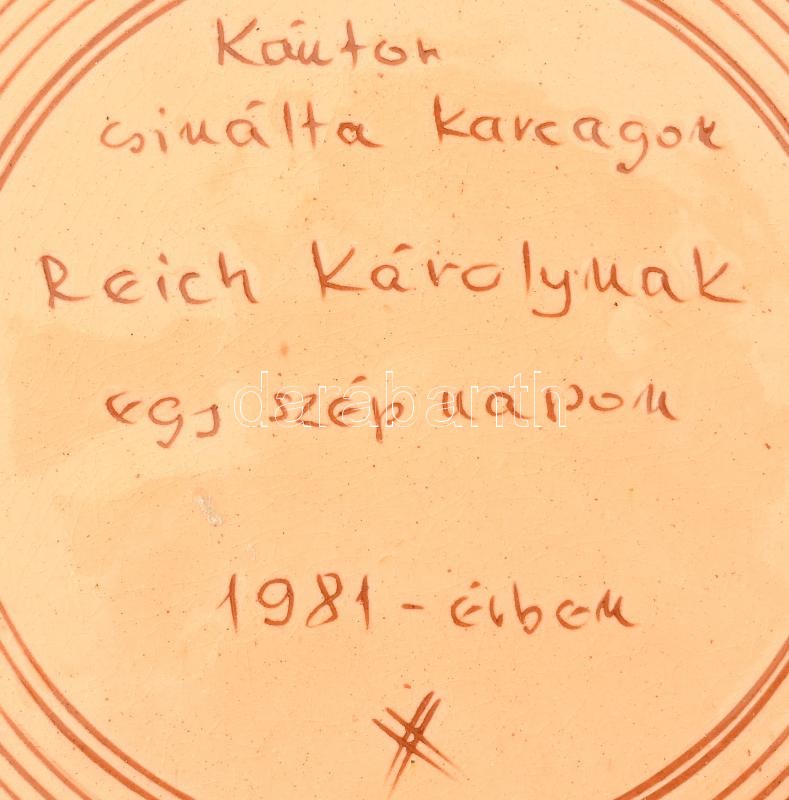 Kántor
csinálta Karcagon
Reich Károlynak
egy szép napon
darabanth
1981-évben